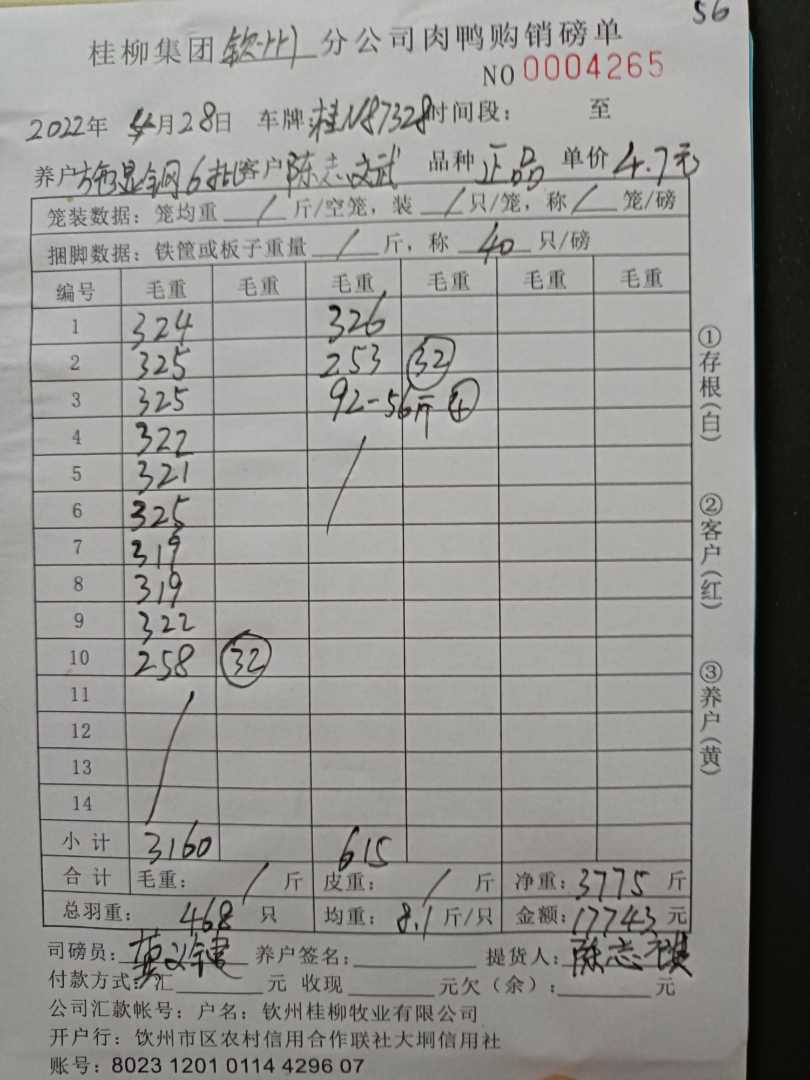 56
桂柳集团钦州分公司肉鸭购销磅单
NO 0004265
2022年 4月28日 车牌:桂N87328时间段: 至
养户 6批客户陈志文武 品种 正品 单价 4.7元
笼装数据:笼均重 / 斤/空笼,装 / 只/笼,称 / 笼/磅
捆脚数据:铁筐或板子重量 / 斤,称 40 只/磅
编号 毛重 毛重 毛重 毛重 毛重 毛重
1 324 326
2 325 253 32
3 325 92-56斤 4
4 322 /
5 321
6 325
7 319
8 319
9 322
10 258 32
11 /
12
13
14
小计 3160 615
合计 毛重: / 斤 皮重: / 斤 净重:3775 斤
总羽重: 468 只 均重: 8.1 斤/只 金额:17743 元
司磅员: 养户签名: 提货人:陈志
付款方式:汇 元 收现 元欠(余): 元
公司汇款帐号:户名:钦州桂柳牧业有限公司
开户行:钦州市区农村信用合作联社大垌信用社
账号:8023 1201 0114 4296 07
①存根(白)
②客户(红)
③养户(黄)